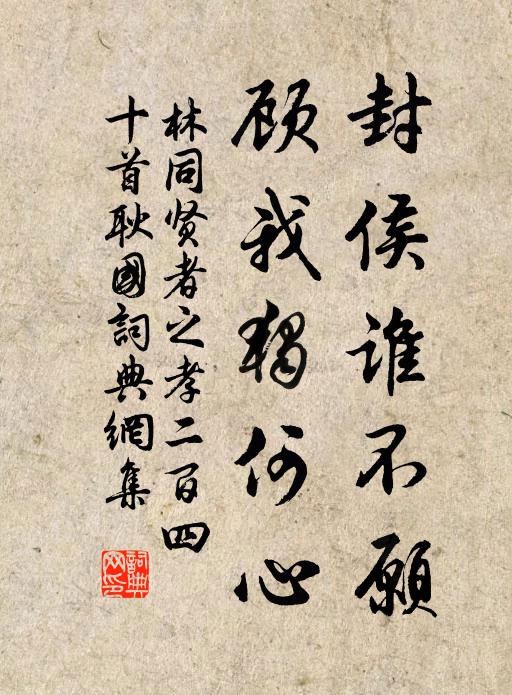 封侯谁不愿
顾我独何心
林同贤者之孝二百四
十首耿國詞典網集
詞典
网印